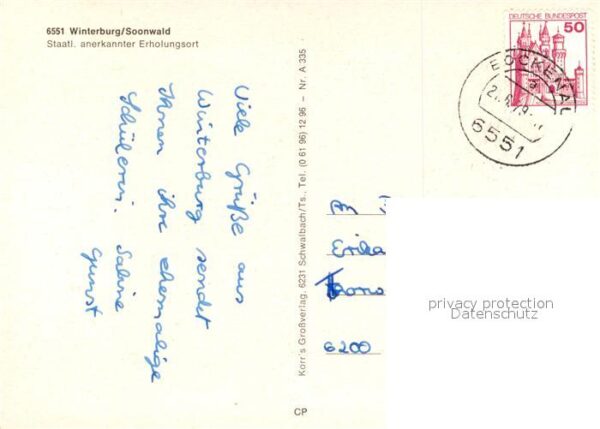 6551 Winterburg/Soonwald
Staatl. anerkannter Erholungsort
DEUTSCHE BUNDESPOST
50
BOCKENAU
6551
Viele Grüße aus
Winterburg sendet
Ihnen ihre ehemalige
Schülerin. Sabine
Gunst
Korr's Großverlag. 6231 Schwalbach/Ts., Tel. (0 61 96) 12 96 – Nr. A 335
6200
privacy protection
Datenschutz
CP